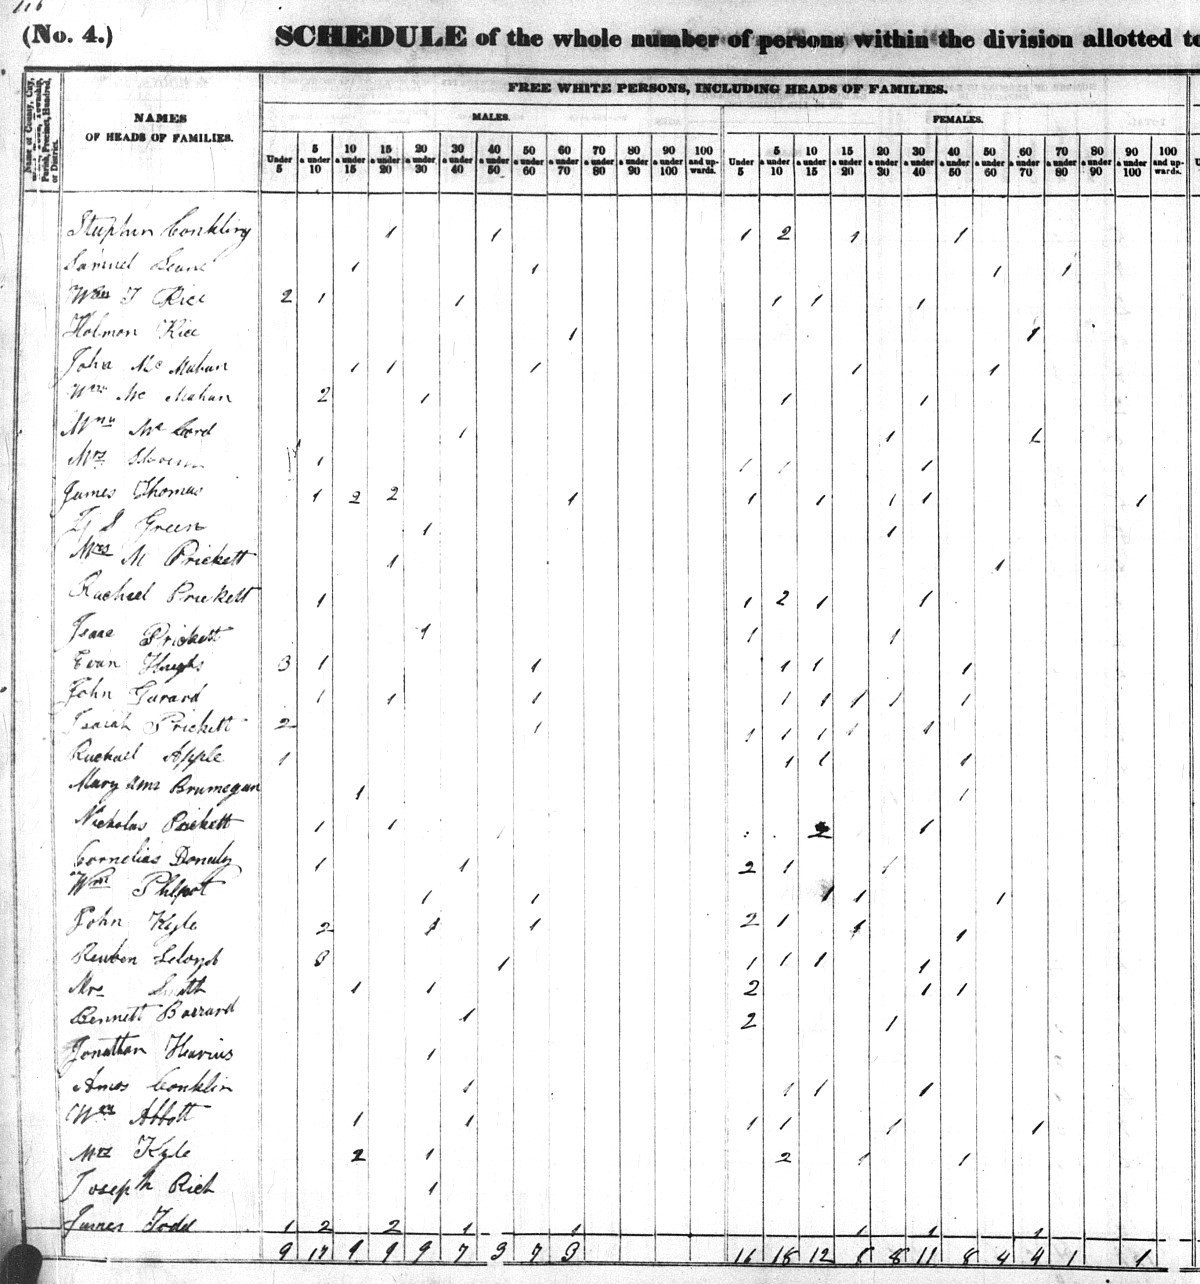 116
(No. 4.) SCHEDULE of the whole number of persons within the division allotted to
FREE WHITE PERSONS, INCLUDING HEADS OF FAMILIES.
NAMES OF HEADS OF FAMILIES.
MALES. FEMALES.
Under 5 | 5 & under 10 | 10 & under 15 | 15 & under 20 | 20 & under 30 | 30 & under 40 | 40 & under 50 | 50 & under 60 | 60 & under 70 | 70 & under 80 | 80 & under 90 | 90 & under 100 | 100 and upwards. | Under 5 | 5 & under 10 | 10 & under 15 | 15 & under 20 | 20 & under 30 | 30 & under 40 | 40 & under 50 | 50 & under 60 | 60 & under 70 | 70 & under 80 | 80 & under 90 | 90 & under 100 | 100 and upwards.
Stephen Conkling 1 1 1 2 1 1
Samuel 1 1 1 1
Wm T Rice 2 1 1 1 1 1
Holman Rice 1 1
John Mc Mahan 1 1 1 1 1
Wm Mc Mahan 2 1 1 1
Wm Mc Cord 1 1 1
Mrs 1 1 1 1
James Thomas 1 2 2 1 1 1 1 1 1
S Green 1 1
Mrs M Prickett 1 1
Rachael Prickett 1 1 2 1 1
Isaac Prickett 1 1 1
Evan Hughs 3 1 1 1 1 1
John Garard 1 1 1 1 1 1 1 1
Isaiah Prickett 2 1 1 1 1 1 1
Rachael Apple 1 1 1 1
Mary Ann Brumegan 1 1
Nicholas Prickett 1 1 2 1
Cornelias Donaly 1 1 2 1 1
Wm Philpot 1 1 1 1 1
John Kyle 2 1 1 2 1 1 1
Reuben Leloyd 3 1 1 1 1 1
Mrs Smith 1 1 2 1 1
Bennett Bozzard 1 2 1
Jonathan 1
Amos Conklin 1 1 1 1
Wm Abbott 1 1 1 1 1 1
Mrs Kyle 2 1 2 1 1
Joseph Rich 1
James Todd 1 2 2 1 1 1 1 1
9 17 9 9 9 7 3 7 3 16 18 12 8 8 11 8 4 4 1 1